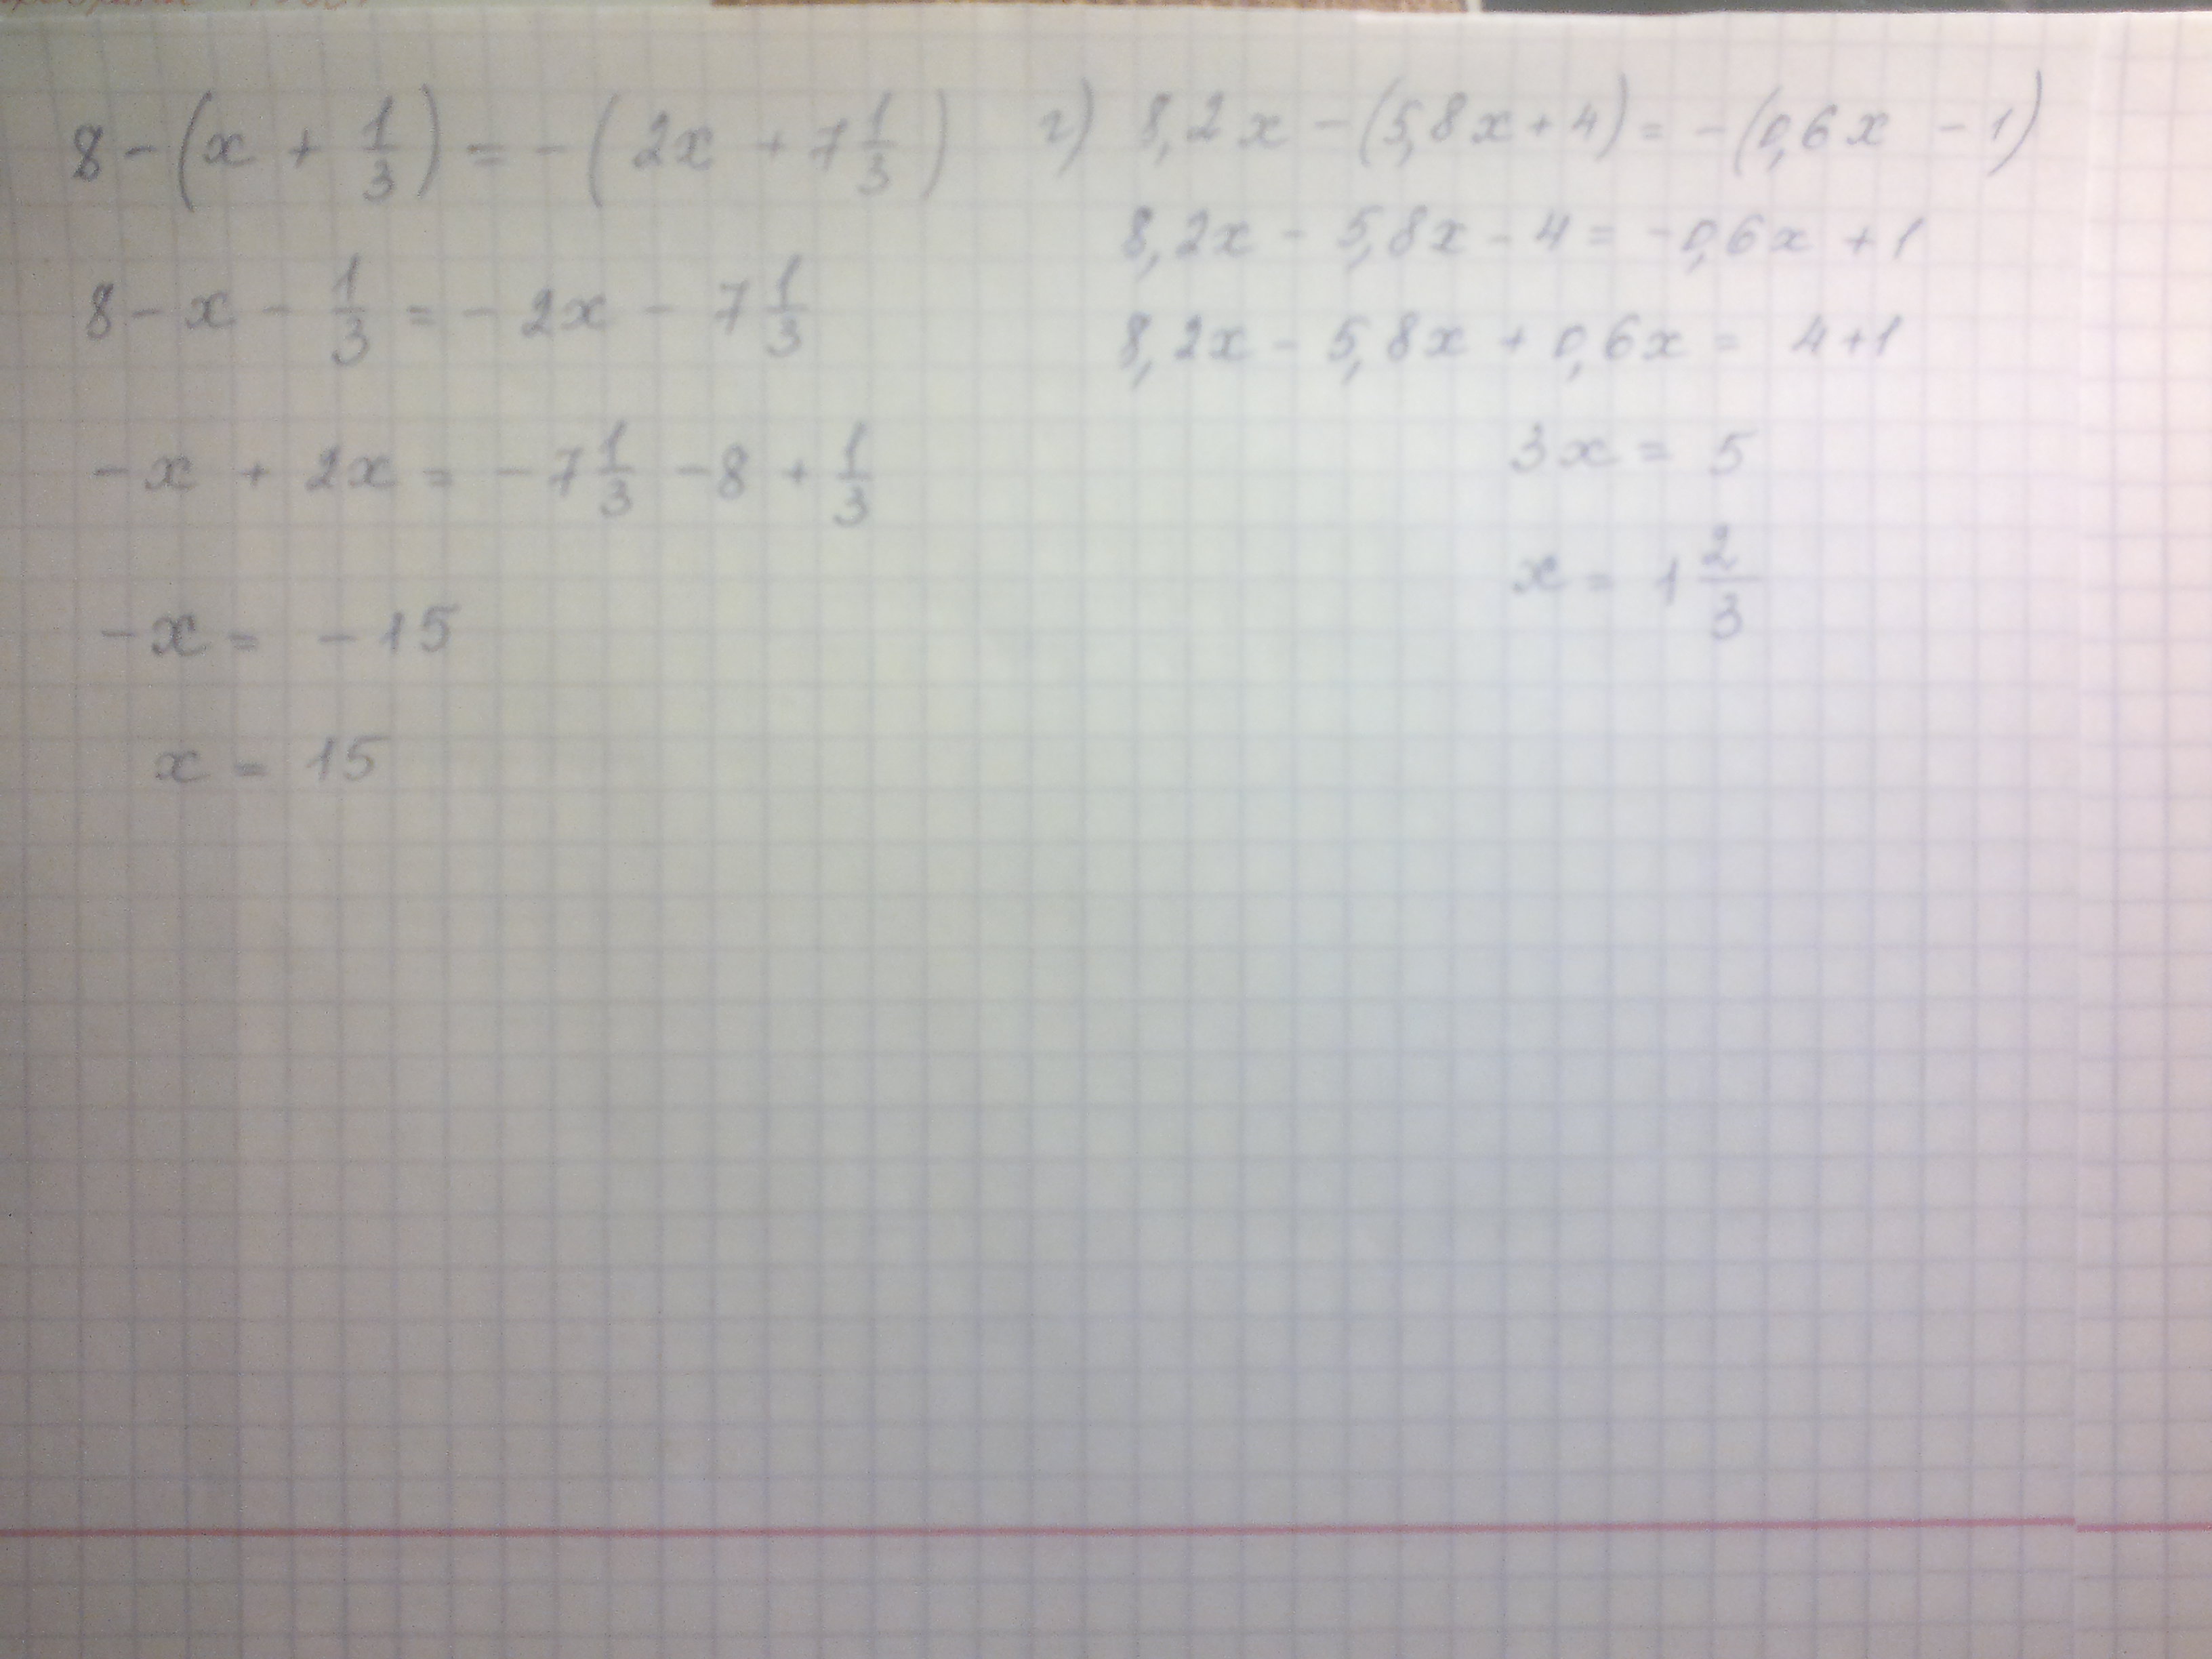 8 - (x + 1/3) = - (2x + 7 1/3)
8 - x - 1/3 = - 2x - 7 1/3
- x + 2x = - 7 1/3 - 8 + 1/3
- x = - 15
x = 15
г) 8,2x - (5,8x + 4) = - (0,6x - 1)
8,2x - 5,8x - 4 = - 0,6x + 1
8,2x - 5,8x + 0,6x = 4 + 1
3x = 5
x = 1 2/3